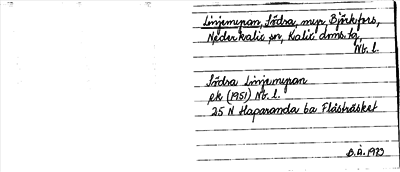 Linjemyran, Södra, myr, Björkfors,
Neder Kalix sn, Kalix dms tg,
Nb. l.
Södra Linjemyran
ek (1951) Nb. l.
25 N Haparanda 6a Flåsträsket
B.Å. 1973